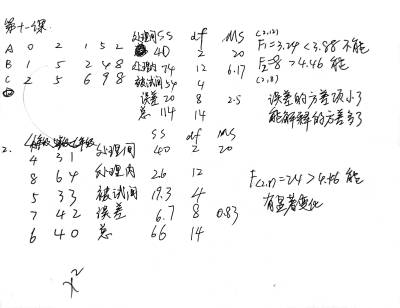 第十一课
SS df MS
A 0 2 1 5 2 处理间 40 2 20 (2,12) F1=3.24<3.88 不能
B 1 5 2 4 8 处理内 74 12 6.17 F2=8>4.46 能
C 2 5 6 9 8 被试间 54 4 (2,8)
误差 20 8 2.5 误差的方差项小了
总 114 14 能解释的方差多了
2. SS df MS
4 3 1 处理间 40 2 20
8 6 4 处理内 26 12 F(2,8)=24>4.46 能
5 3 3 被试间 19.3 4 有显著变化
7 4 2 误差 6.7 8 0.83
6 4 0 总 66 14
x²